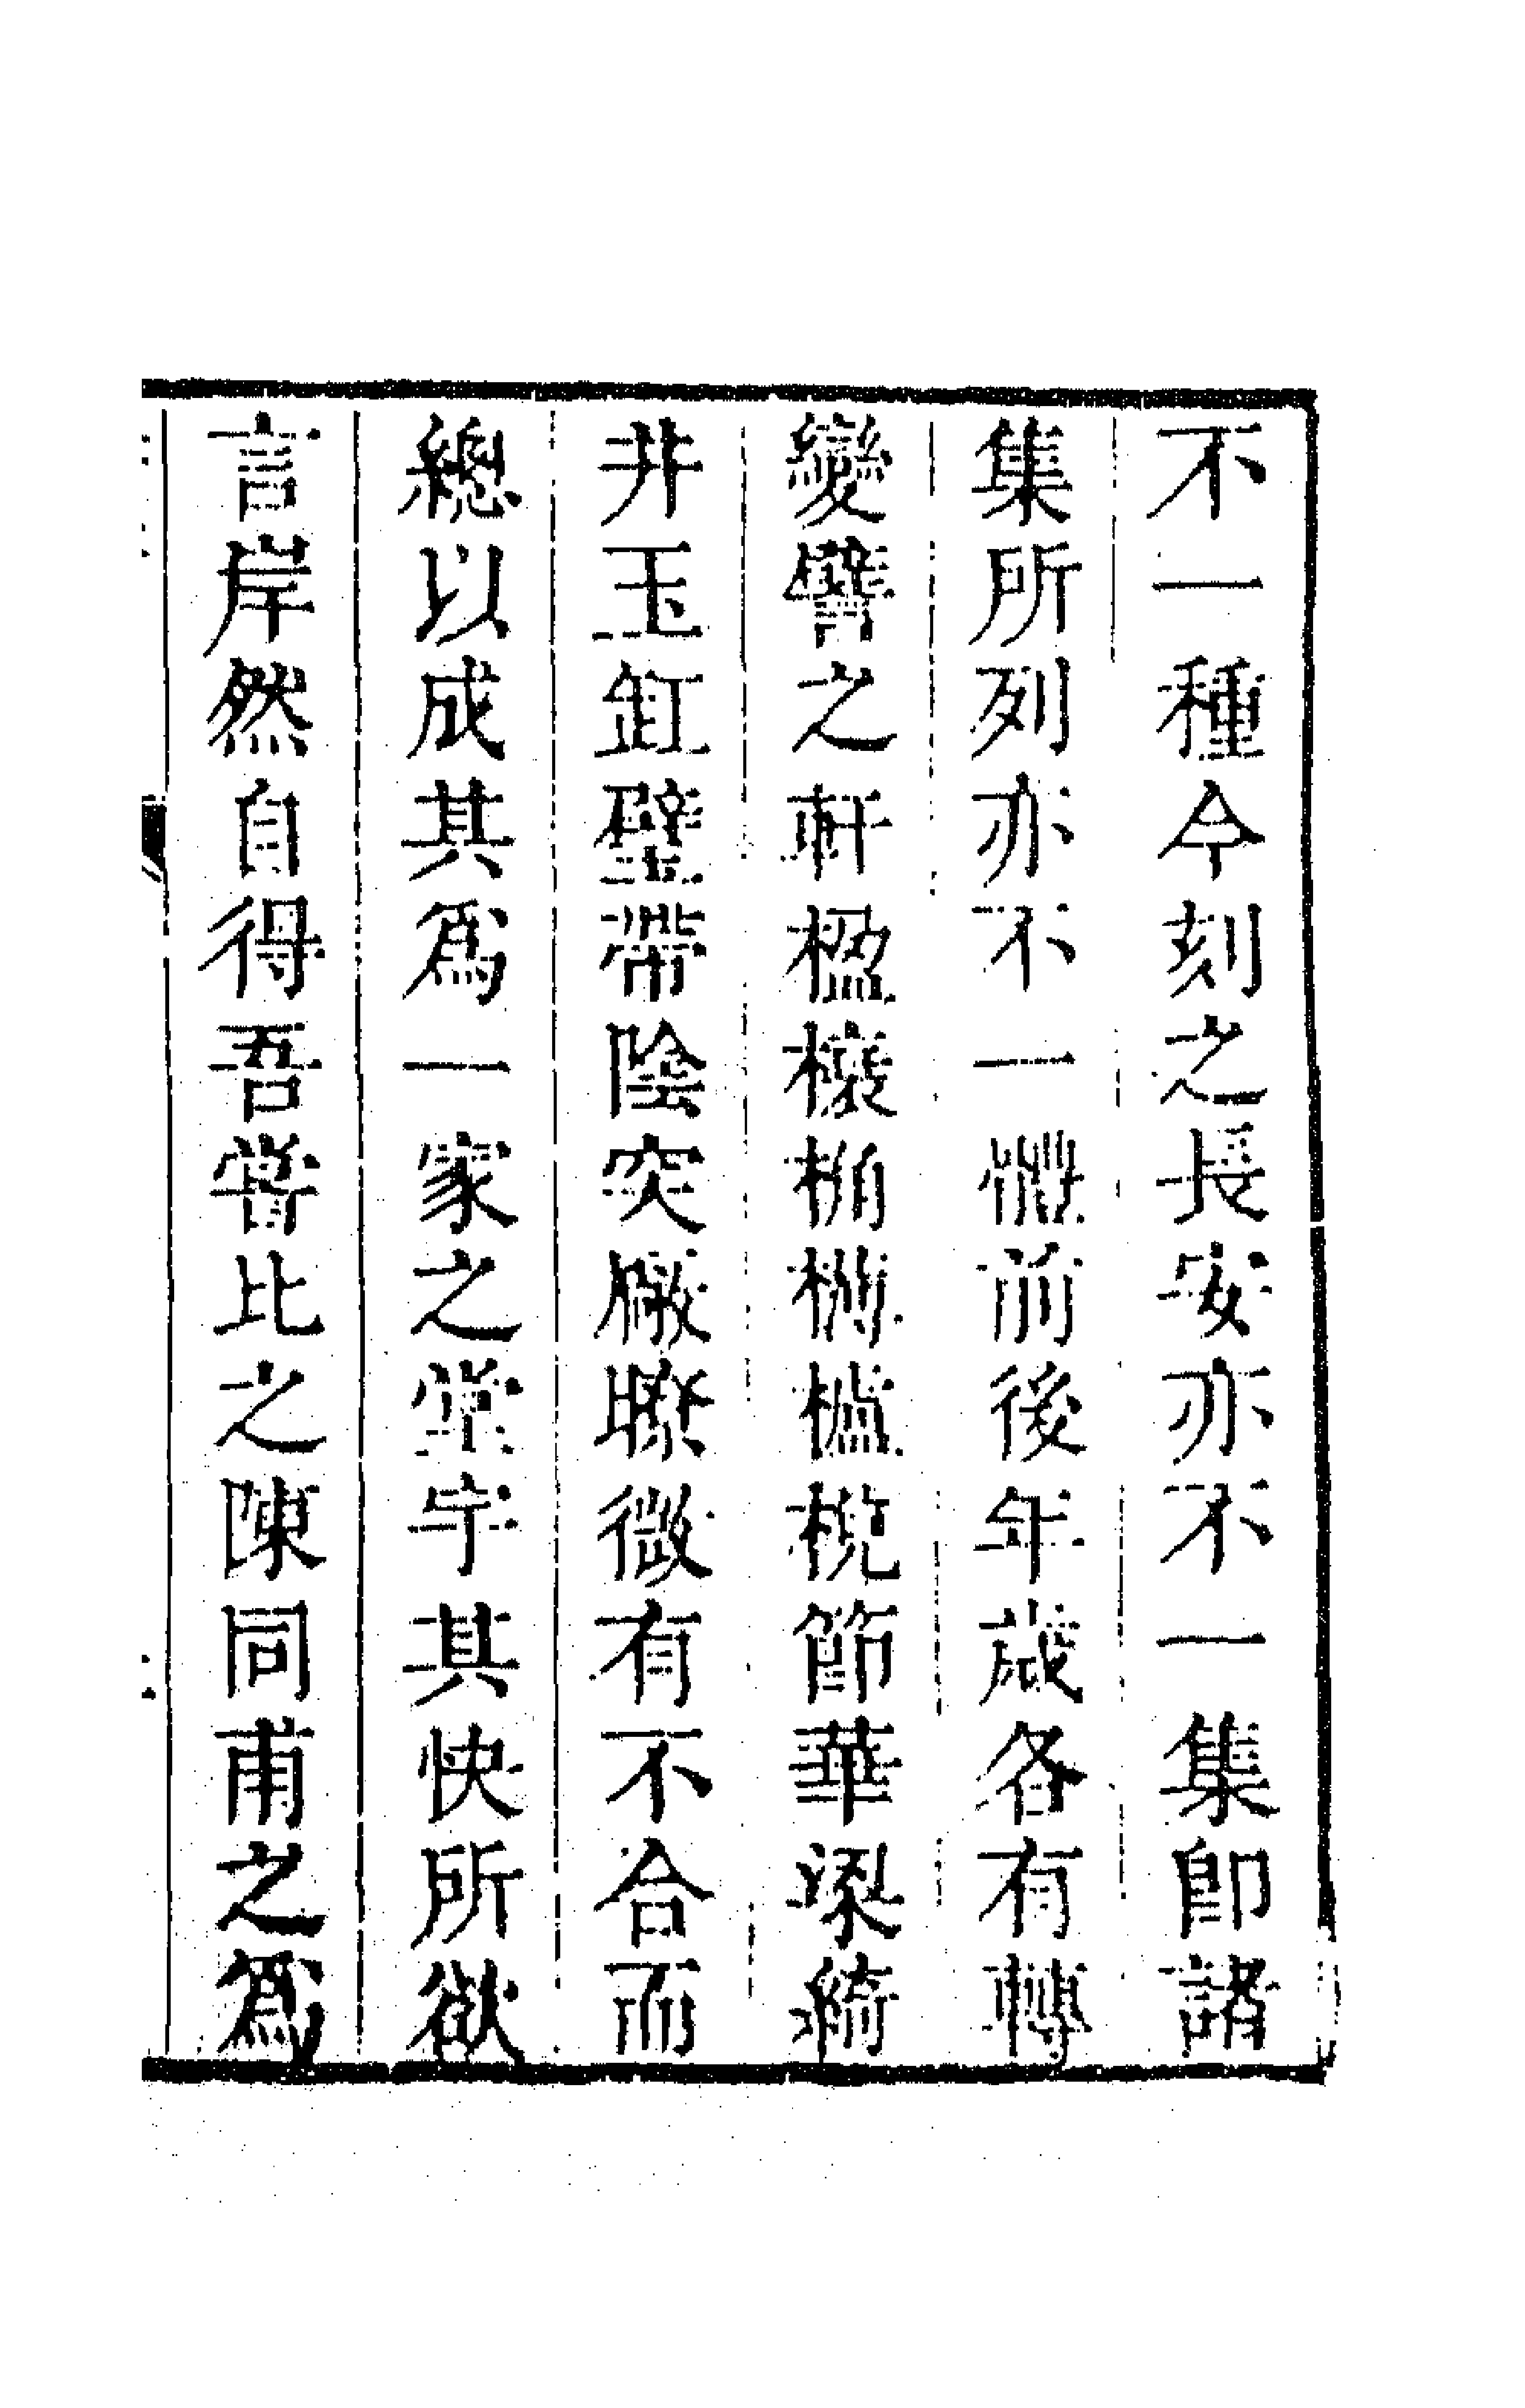 不一種今刻之長安亦不一集卽諸
集所列亦不一前後年歲各有轉
變譬之軒楹榱桷櫨梲節華梁綺
井玉缸壁帶陰突廠瞭微有不合而
總以成其爲一家之堂宇其快所欲
言岸然自得吾嘗比之陳同甫之爲